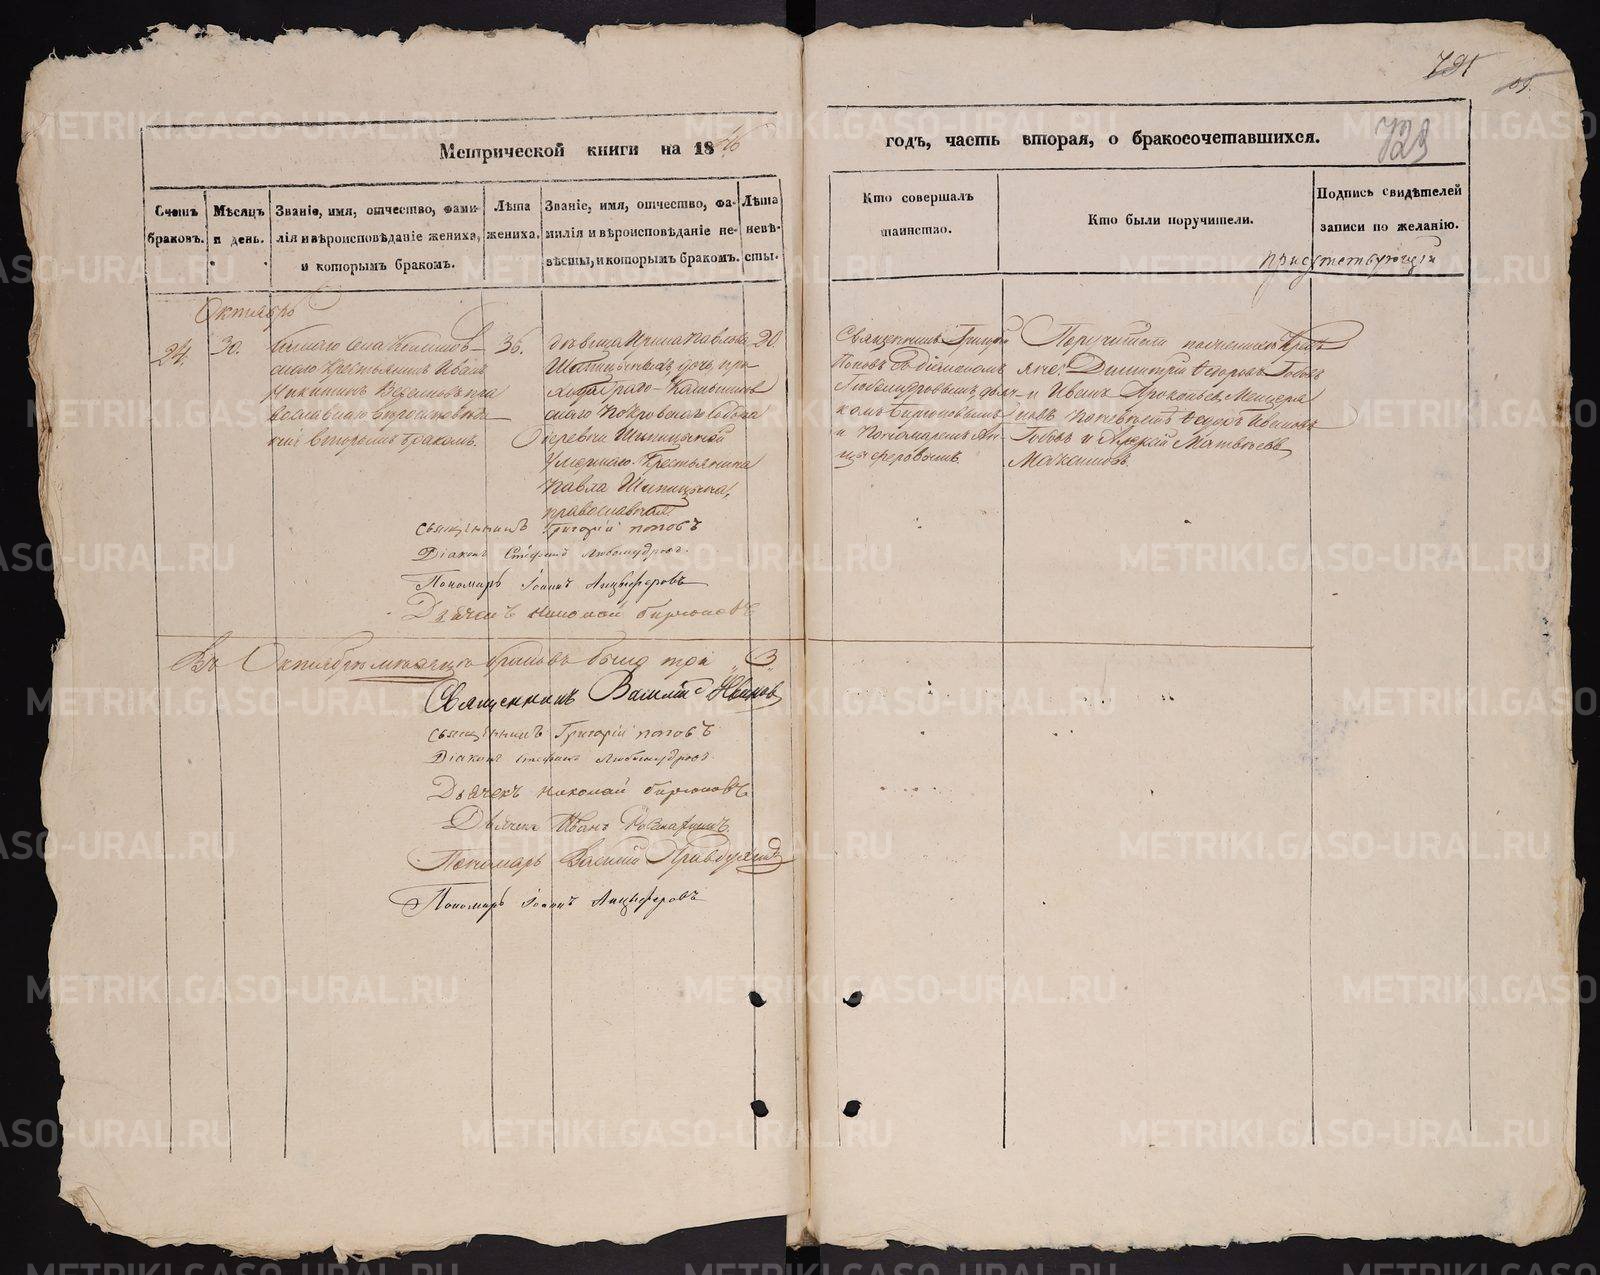 791
729
Метрической книги на 1846
годъ, часть вторая, о бракосочетавшихся.
Счетъ браковъ.
Мѣсяцъ и день.
Званіе, имя, отчество, фами-
лія и вѣроисповѣданіе жениха,
и которымъ бракомъ.
Лѣта
жениха.
Званіе, имя, отчество, фа-
милія и вѣроисповѣданіе не-
вѣсты, и которымъ бракомъ.
Лѣта
невѣ-
сты.
Кто совершалъ
таинство.
Кто были поручители.
Подпись свидѣтелей
записи по желанію.
присутствующіи
Октябрь
24.
30.
села
скаго Крестьянинъ Иванъ
Никитинъ пра
вославнаго
вторымъ бракомъ.
36.
дѣвица Ирина Павлова
дочь, при
Камышлов
скаго Покровскаго Собора
деревни Шипицыной
умершаго Крестьянина
Павла Шипицына,
православная.
20
Священникъ Григорій
Поповъ съ діакономъ
Любомудровымъ, дьяч-
комъ Бирюковымъ
и Пономаремъ Ан-
цыферовымъ.
Поручители по женихѣ Кресть
яне: Димитрій Ѳедоровъ
и Иванъ Прокопьевъ Мещеря
ковъ по невѣстѣ Ѳедоръ Ивановъ
и Андрей Матвѣевъ
Максимовъ.
Священникъ Григорій Поповъ
Діаконъ Стефанъ Любомудровъ.
Пономарь Іоаннъ Анцыферовъ
Дьячекъ Николай Бирюковъ
Въ Октябрѣ мѣсяцѣ браковъ было три "3"
Священникъ Василій
Священникъ Григорій Поповъ
Діаконъ Стефанъ Любомудровъ.
Дьячекъ Николай Бирюковъ
Дьячекъ Иванъ
Пономарь Василій
Пономарь Іоаннъ Анцыферовъ
METRIKI.GASO-URAL.RU